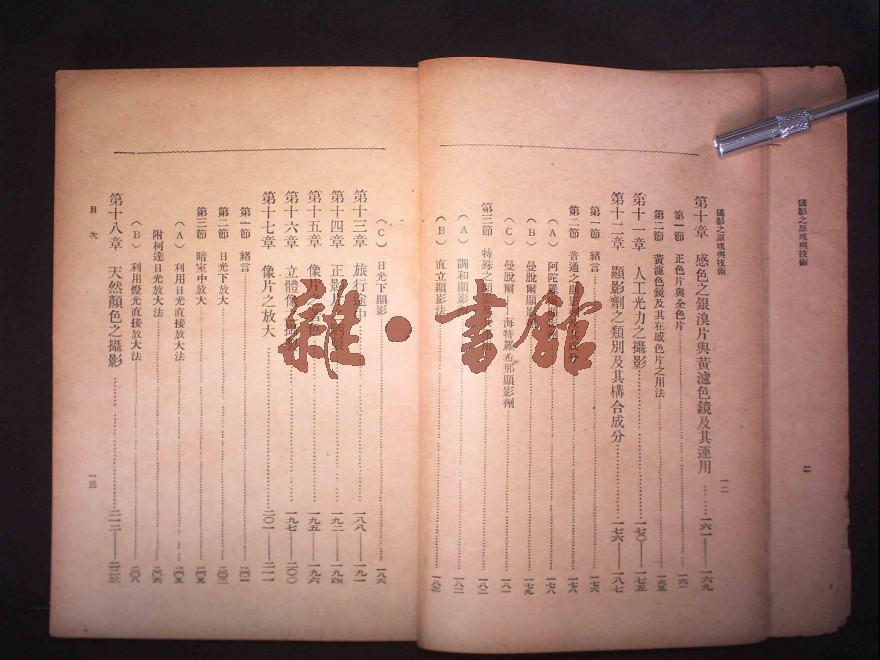 攝影之原理與技術
二
攝影之原理與技術
一二
第十章 感色之銀溴片與黃濾色鏡及其運用 一六一——一六九
第一節 正色片與全色片 一六一
第二節 黃濾色鏡及其在感色片之用法 一六五
第十一章 人工光力之攝影 一七〇——一七五
第十二章 顯影劑之類別及其構合成分 一七六——一八七
第一節 緒言 一七六
第二節 普通之顯影 一七八
(A) 阿陀羅 一七八
(B) 曼脫爾顯影 一七九
(C) 曼脫爾——海特羅布那顯影劑 一八一
第三節 特殊之顯 一八二
(A) 調和顯影 一八二
(B) 直立顯影法 一八三
(C) 日光下顯影 一八六
第十三章 旅行途中 一八八——一九一
第十四章 正影片 一九二——一九四
第十五章 像片 一九五——一九六
第十六章 立體像 一九七——二〇〇
第十七章 像片之放大 二〇一——二一一
第一節 緒言 二〇一
第二節 日光下放大 二〇三
第三節 暗室中放大 二〇五
(A) 利用日光直接放大法 二〇五
附柯達日光放大法 二〇六
(B) 利用燈光直接放大法 二〇八
第十八章 天然顏色之攝影 二一二——二二三
目次
一三
雜·書館